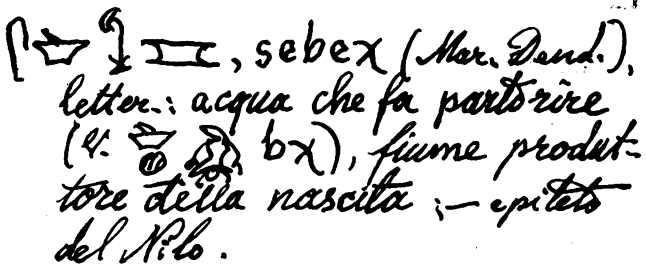 , sebeχ (Mar. Dend.),
letter.: acqua che fa partorire
(v. bχ), fiume produt-
tore della nascita ;— epiteto
del Nilo.